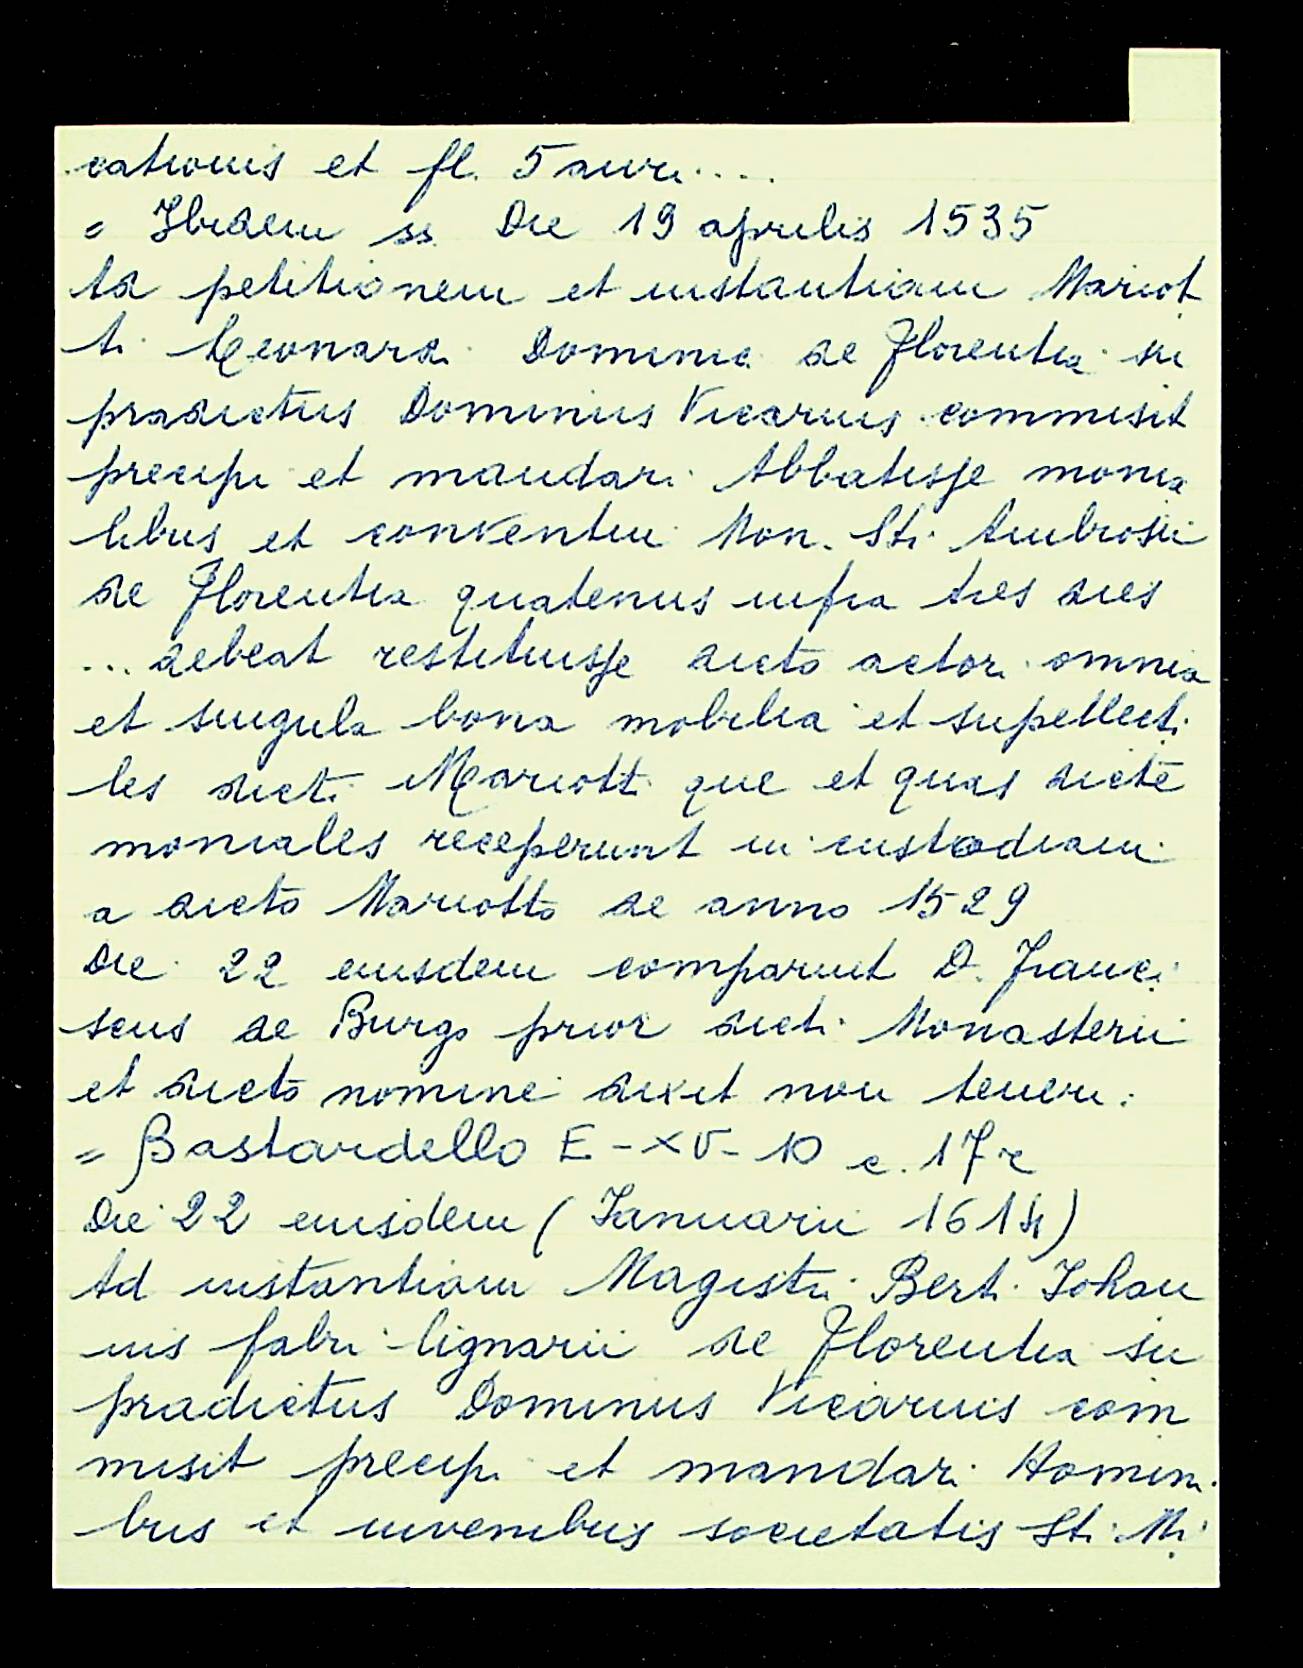 cationis et fl. 5 auri....
= Ibidem ss. Die 19 aprilis 1535
Ad petitionem et instantiam Mariot
ti Leonardi Dominici de Florentia su
pradictus Dominus Vicarius commisit
precipi et mandari Abbatisse monia
libus et conventui Mon. Sti. Ambrosii
de Florentia quatenus infra tres dies
... debeat restituisse dicto actori omnia
et singula bona mobilia et supellecti
les dicti Mariotti que et quas dicte
moniales receperunt in custodiam
a dicto Mariotto de anno 1529
Die 22 eiusdem comparuit D. Franci
scus de Burgo prior dicti Monasterii
et dicto nomine dixit non teneri.
= Bastardello E-XV-10 c. 17r
Die 22 eiusdem (Ianuarii 1614)
Ad instantiam Magistri Berti Iohan
nis fabri lignarii de Florentia su
pradictus Dominus Vicarius com
misit precipi et mandari Homini
bus et iuvenibus societatis Sti Mi